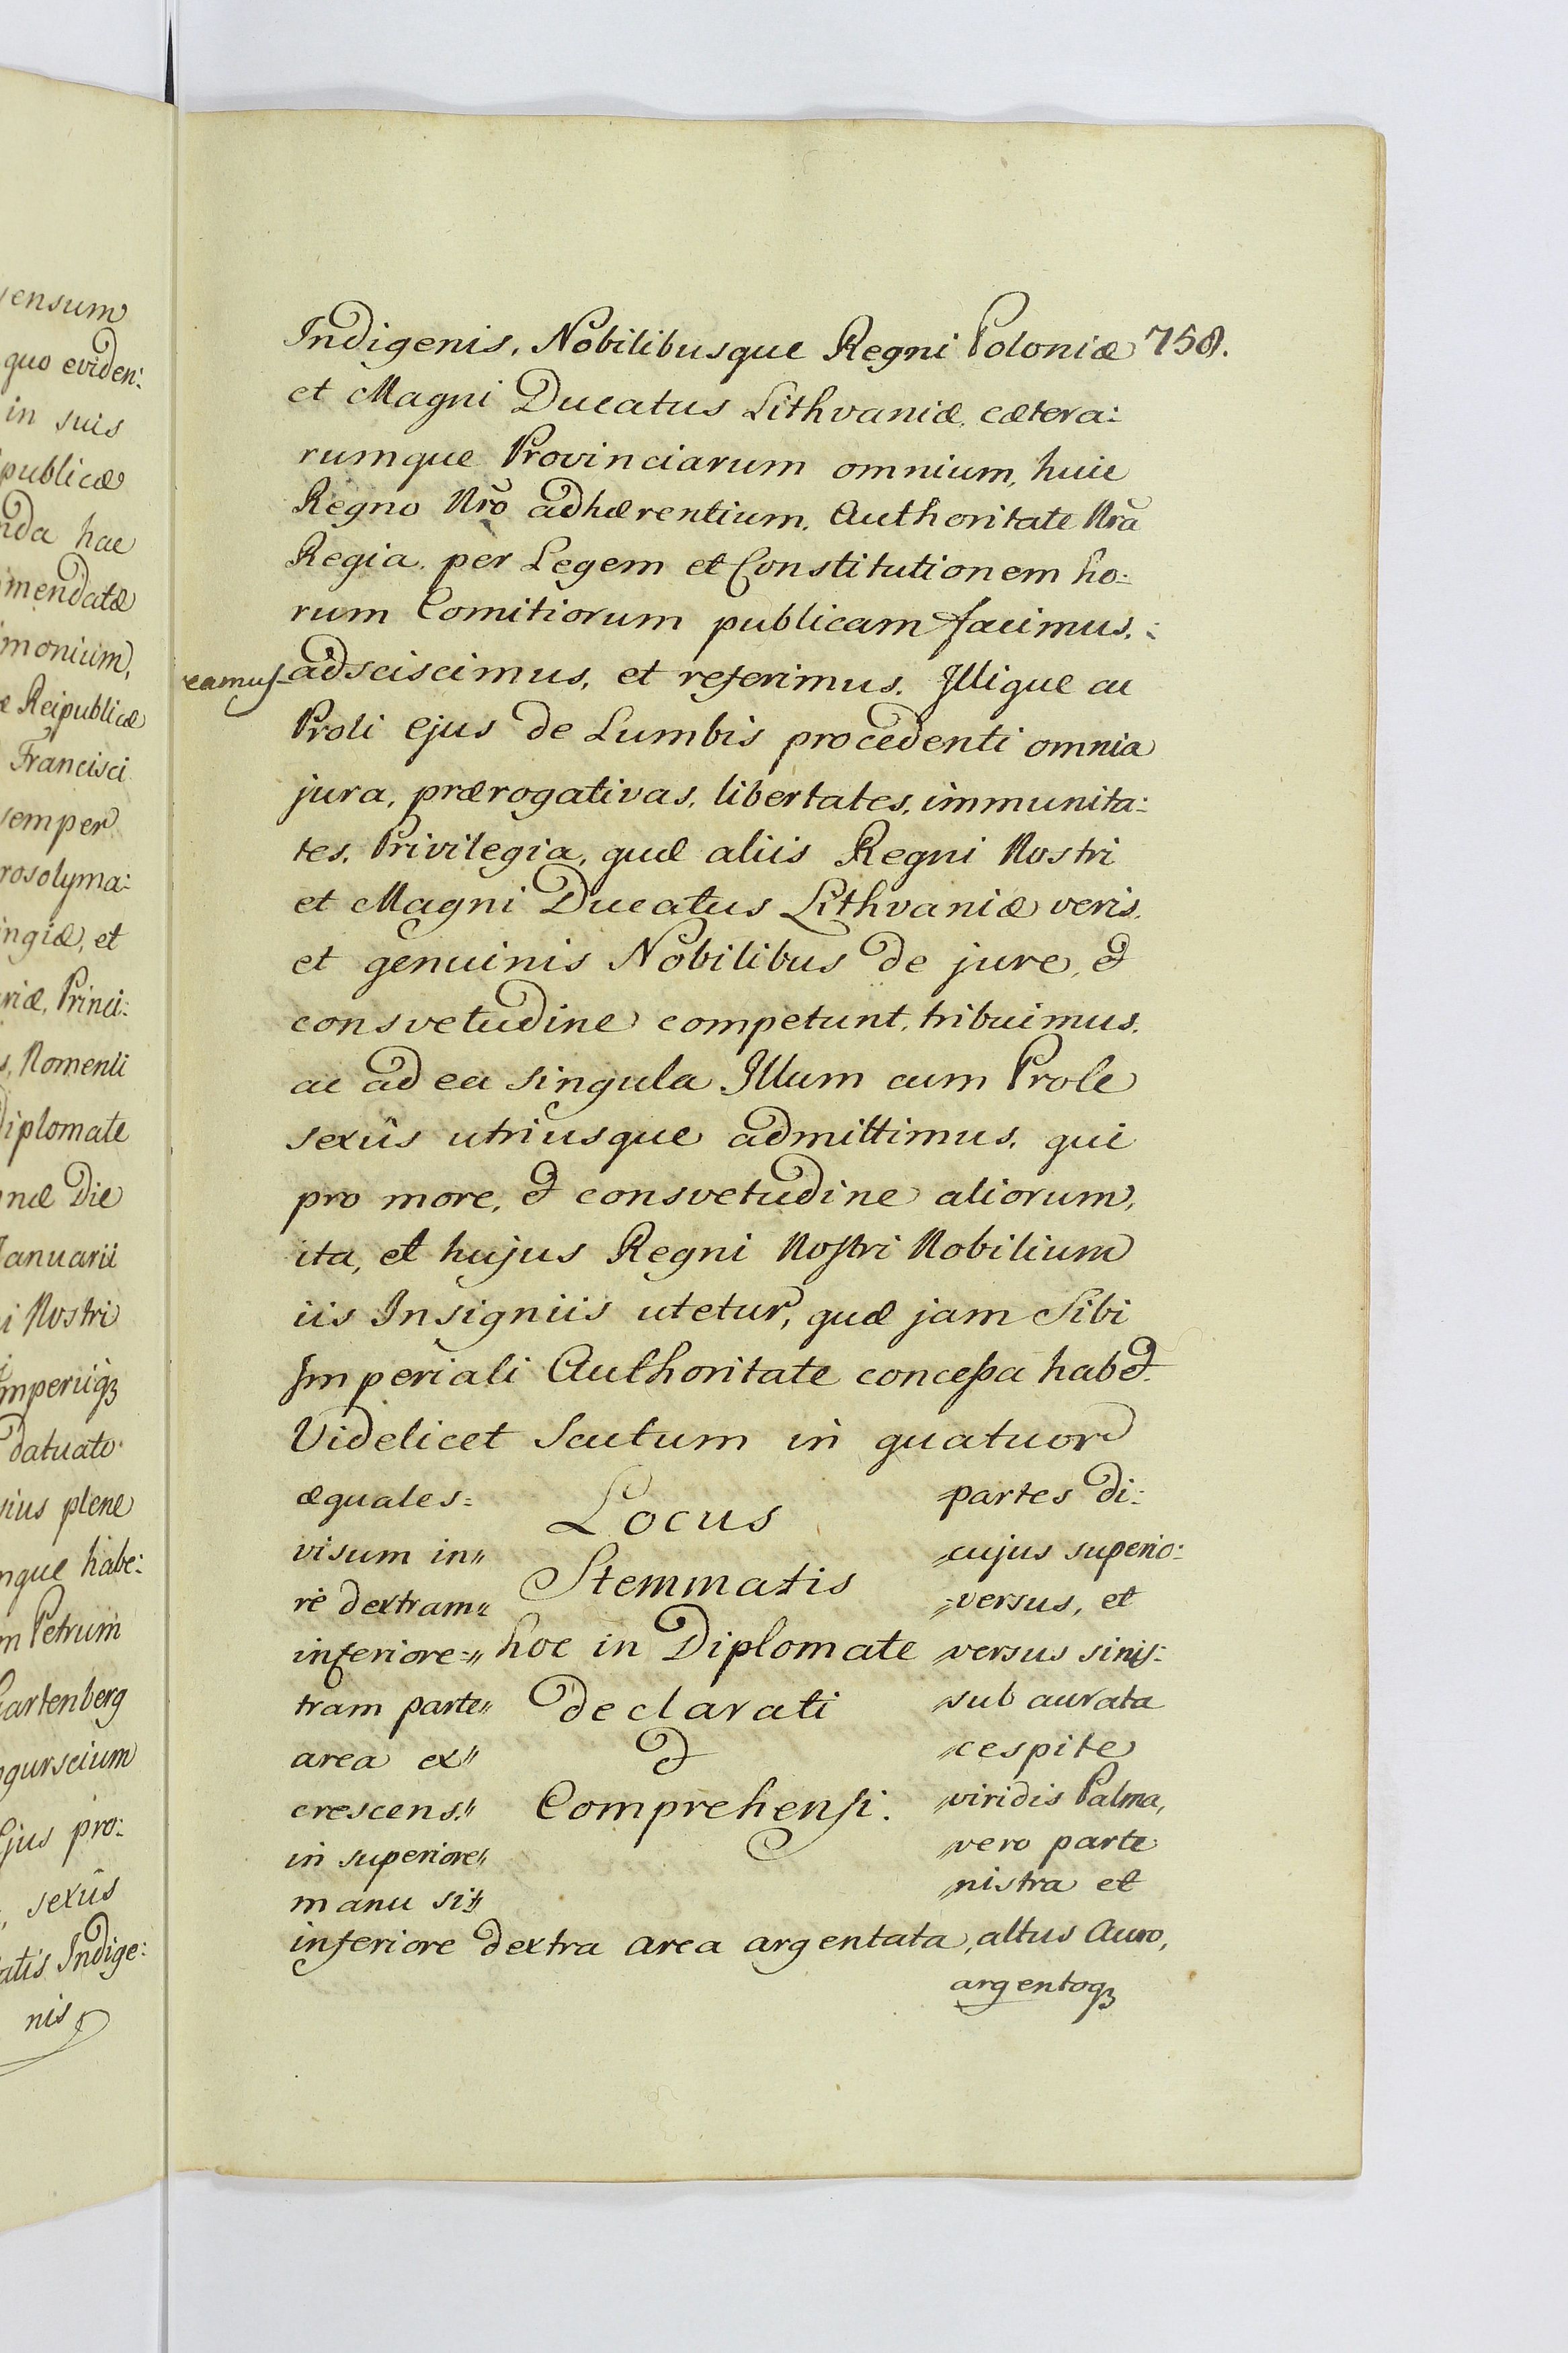 ensum
quo eviden:
in suis
publicæ
nda hac
mendatæ
monium,
æ Reipublicæ
Francisci
semper
rosolyma:
ingiæ, et
riæ, Princi:
s, Nomenti
Diplomate
næ Die
Januarii
i Nostri
mperiiqȝ
datuato
sius plene
nque habe:
m Petrum
Gartenberg
ogurscium
Ejus pro:
, sexûs
atis Indige:
nis
Indigenis, Nobilibusque Regni Poloniæ 758.
et Magni Ducatus Lithvaniæ, cætera:
rumque Provinciarum omnium, huic
Regno Nr̃o adhærentium, Authoritate Nr̃a
Regia, per Legem et Constitutionem ho:
rum Comitiorum publicam facimus,:
eamus adsciscimus, et referimus. Illique ac
Proli ejus de Lumbis procedenti omnia
jura, prærogativas, libertates, immunita:
tes, Privilegia, quæ aliis Regni Nostri
et Magni Ducatus Lithvaniæ veris,
et genuinis Nobilibus de jure, &
consvetudine competunt, tribuimus,
ac ad ea singula Illum cum Prole
sexûs utriusque admittimus, qui
pro more, & consvetudine aliorum,
ita, et hujus Regni Nostri Nobilium
iis Insigniis utetur, quæ jam Sibi
Imperiali Authoritate concessa hab&.
Videlicet Scutum in quatuor
æquales= Locus partes di:
visum in" Stemmatis "cujus superio:
re dextram" "versus, et
inferiore=" hoc in Diplomate "versus sinis:
tram parte" declarati "sub aurata
area ex" & "cespite
crescens" Comprehensi. "viridis Palma,
in superiore" "vero parte
manu si" "nistra et
inferiore dextra area argentata, altus Auro,
argentoqȝ